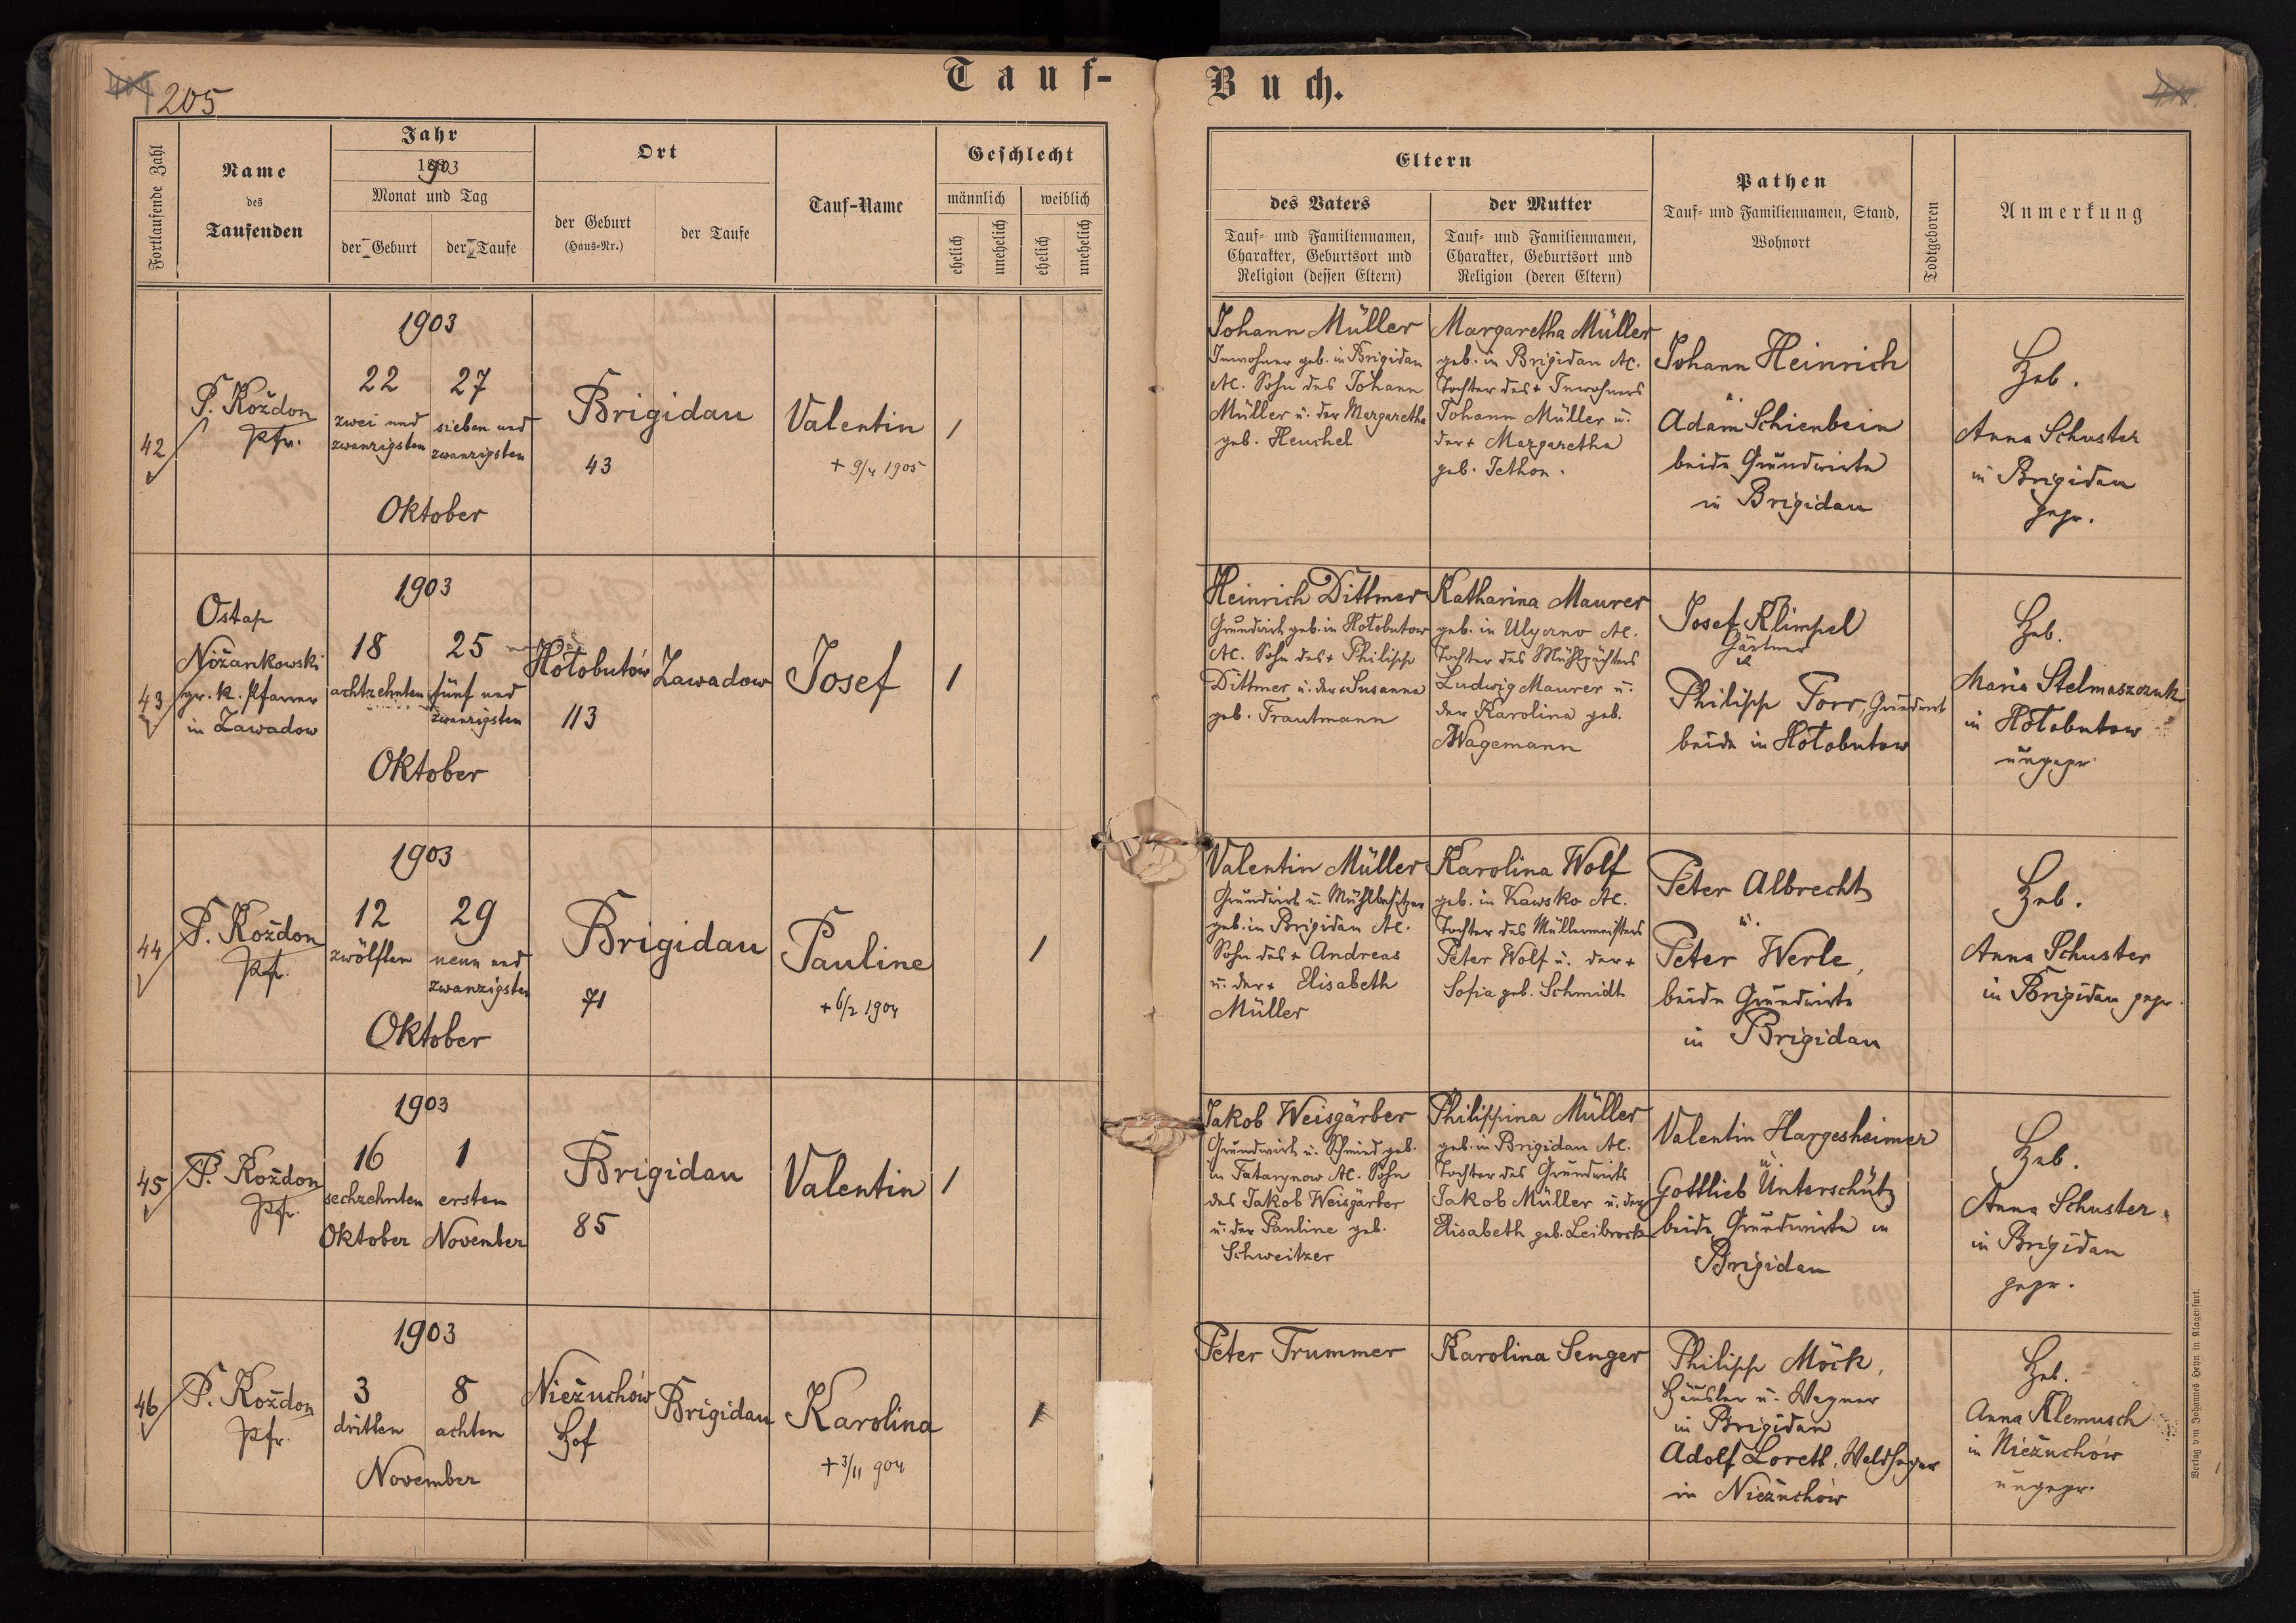 205
Tauf-
Buch.
Fortlaufende Zahl
Name
des
Taufenden
Jahr
1903
Monat und Tag
der Geburt
der Taufe
Ort
der Geburt
(Haus-Nr.)
der Taufe
Tauf-Name
Geschlecht
männlich
weiblich
ehelich
unehelich
ehelich
unehelich
Eltern
des Vaters
Tauf- und Familiennamen,
Charakter, Geburtsort und
Religion (dessen Eltern)
der Mutter
Tauf- und Familiennamen,
Charakter, Geburtsort und
Religion (deren Eltern)
Pathen
Tauf- und Familiennamen, Stand,
Wohnort
Todtgeboren
Anmerkung
42
P. Koždon
Pfr.
1903
22
zwei und
zwanzigsten
27
sieben und
zwanzigsten
Oktober
Brigidau
43
Valentin
+ 9/4 1905
1
Johann Müller
Inwohner geb. in Brigidau
AC. Sohn des Johann
Müller u. der Margaretha
geb. Heuchel
Margaretha Müller
geb. in Brigidau AC.
Tochter des + Inwohners
Johann Müller u.
der + Margaretha
geb. Jethon.
Johann Heinrich
u.
Adam Schienbein
beide Grundwirte
in Brigidau
Heb.
Anna Schuster
in Brigidau
gepr.
43
Ostap
Nižankowski
gr. k. Pfarrer
in Zawadow
1903
18
achtzehnten
25
fünf und
zwanzigsten
Oktober
Hołobutów
113
Zawadow
Josef
1
Heinrich Dittmer
Grundwirt geb. in Hołobutow
AC. Sohn des + Philipp
Dittmer u. der + Susanna
geb. Trautmann
Katharina Maurer
geb. in Ulyczno AC.
Tochter des Mühlpächters
Ludwig Maurer u.
der Karolina geb.
Wagemann
Josef Klimpel
Gärtner
u.
Philipp Torr, Grundwirt
beide in Hołobutow
Heb.
Maria Stelmaszczuk
in Hołobutow
ungepr.
44
P. Koždon
Pfr.
1903
12
zwölften
29
neun und
zwanzigsten
Oktober
Brigidau
71
Pauline
+ 6/2 1904
1
Valentin Müller
Grundwirt u. Mühlbesitzer
geb. in Brigidau AC.
Sohn des + Andreas
u. der + Elisabeth
Müller
Karolina Wolf
geb. in Kawsko AC.
Tochter des Müllermeisters
Peter Wolf u. der +
Sofia geb. Schmidt
Peter Albrecht
u.
Peter Werle,
beide Grundwirte
in Brigidau
Heb.
Anna Schuster
in Brigidau gepr.
45
P. Koždon
Pfr.
1903
16
sechzehnten
Oktober
1
ersten
November
Brigidau
85
Valentin
1
Jakob Weisgärber
Grundwirt u. Schmied geb.
in Tatarynow AC. Sohn
des Jakob Weisgärber
u. der Pauline geb.
Schweitzer
Philippina Müller
geb. in Brigidau AC.
Tochter des Grundwirts
Jakob Müller u. der
Elisabeth geb. Leibrock
Valentin Hargesheimer
u.
Gottlieb Unterschütz
beide Grundwirte in
Brigidau
Heb.
Anna Schuster
in Brigidau
gepr.
46
P. Koždon
Pfr.
1903
3
dritten
8
achten
November
Niežuchów
Hof
Brigidau
Karolina
+ 3/11 904
1
Peter Trummer
Karolina Senger
Philipp Möck,
Häusler u. Wagner
in Brigidau
Adolf Loretl, Waldheger
in Niežuchów
Heb.
Anna Klemusch
in Niežuchów
ungepr.
Verlag von Johannes Heyn in Klagenfurt.